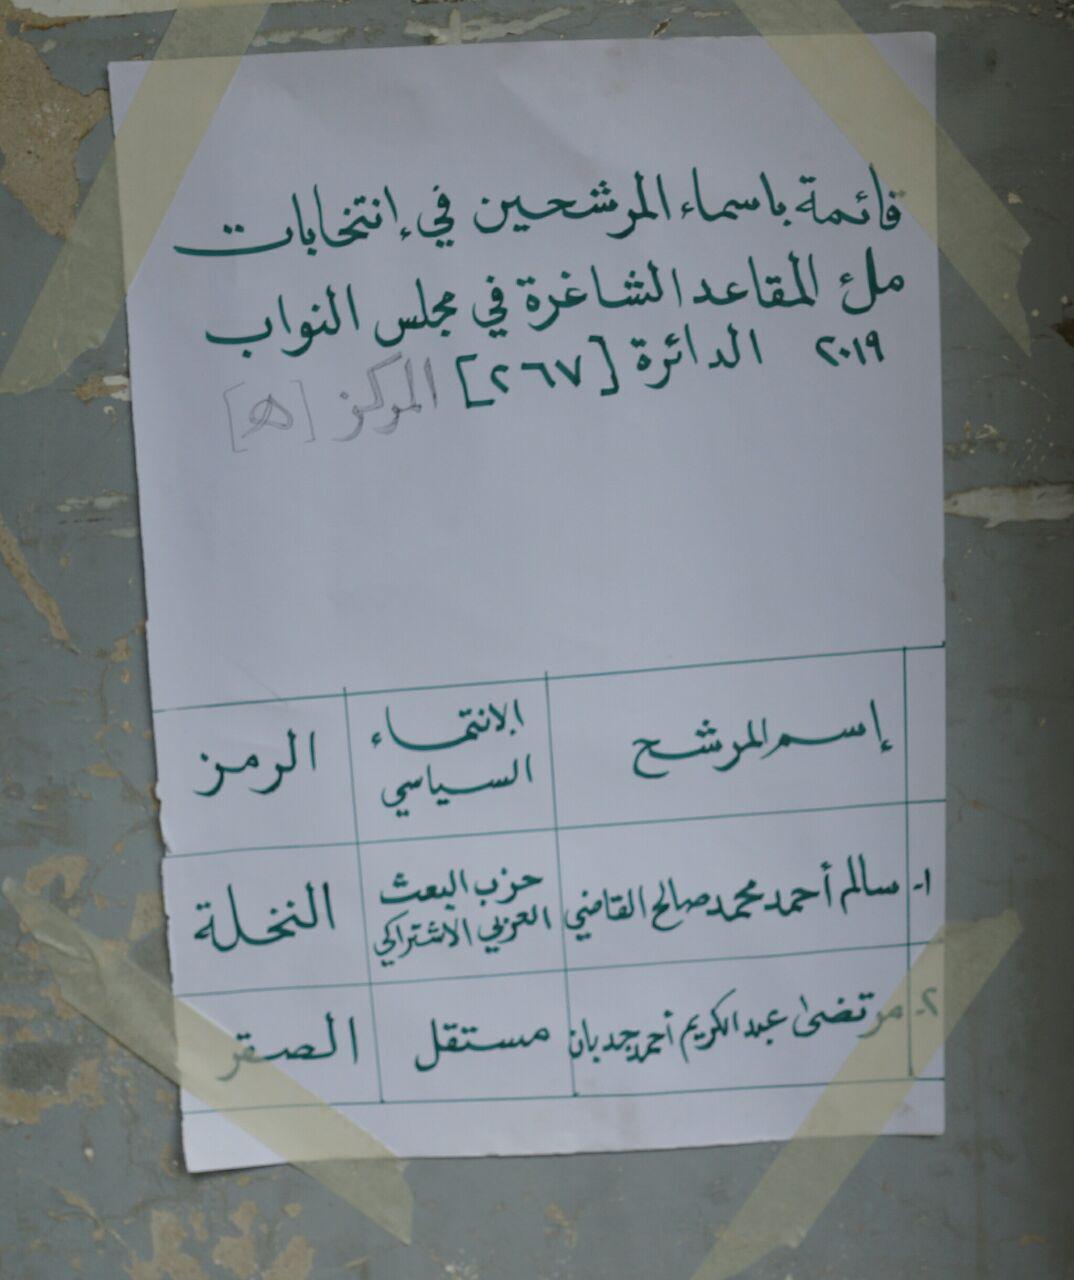 قائمة باسماء المرشحين في إنتخابات
ملئ المقاعد الشاغرة في مجلس النواب
٢٠١٩ الدائرة [٢٦٧] المركز [ھ]
إسم المرشح
الانتماء
السياسي
الرمز
١- سالم أحمد محمد صالح القاضي
حزب البعث
العربي الاشتراكي
النخلة
٢- مرتضى عبد الكريم أحمد جدبان
مستقل
الصقر